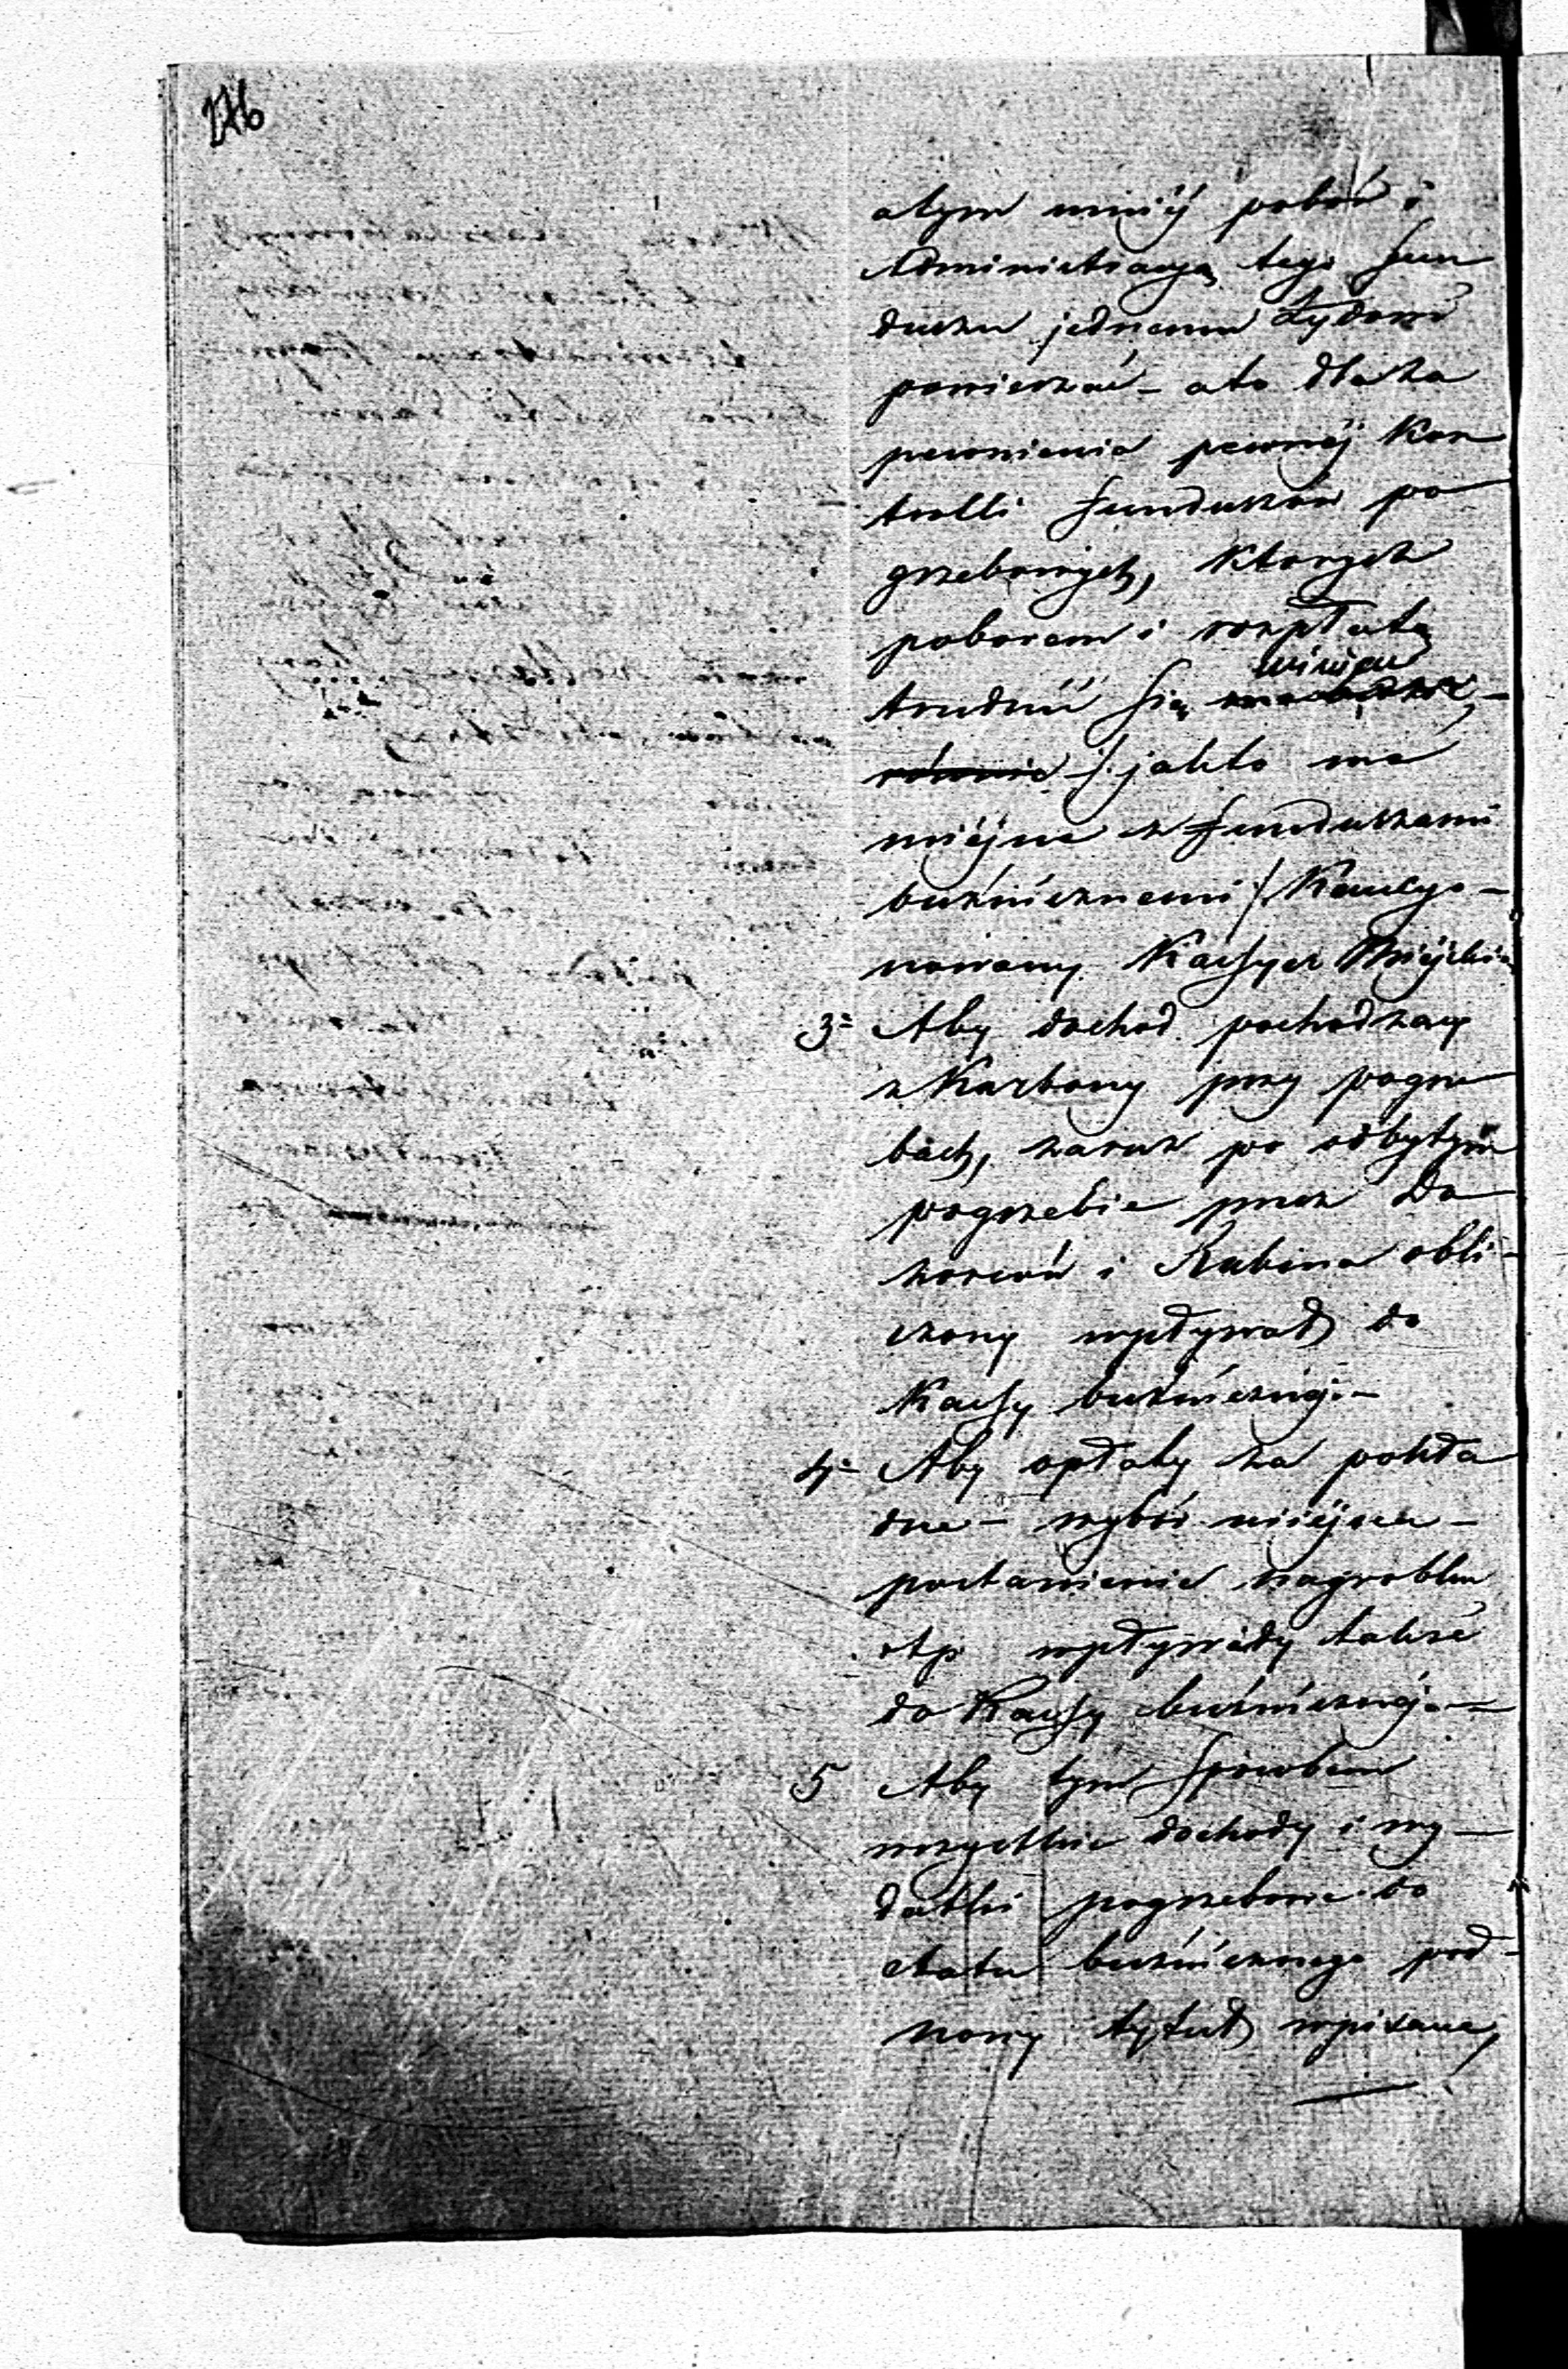 176
atym mniéj pobór i
Administracyą tego fun
duszu jednemu Żydowi
powierzać – ato dla za
pewnienia pewnéj Kon
trolli funduszów po
grzebowych, ktorych
poborem i rozpłatą
winien
trudnić się
rownie /: jakto ma
miéjsce z funduszami
bużnicznemi :/ Kaucyo-
nowany Kassyer Miéjski
3= Aby dochod pochodzący
z Karbony przy pogrze
bach, zaraz po odbytym
pogrzebie przez Do
zorców i Rabina obli-
czony wpływał do
Kassy bużnicznéj.–
4= Aby opłaty za pokła
dne – wybór miéjsca –
postawienie nagrobku
itp wpływały także
do Kassy bużnicznéj.–
5 Aby tym sposobem
wszystkie dochody i wy-
datki pogrzebowe do
etatu bużnicznego pod-
nowy tytuł wpisane,